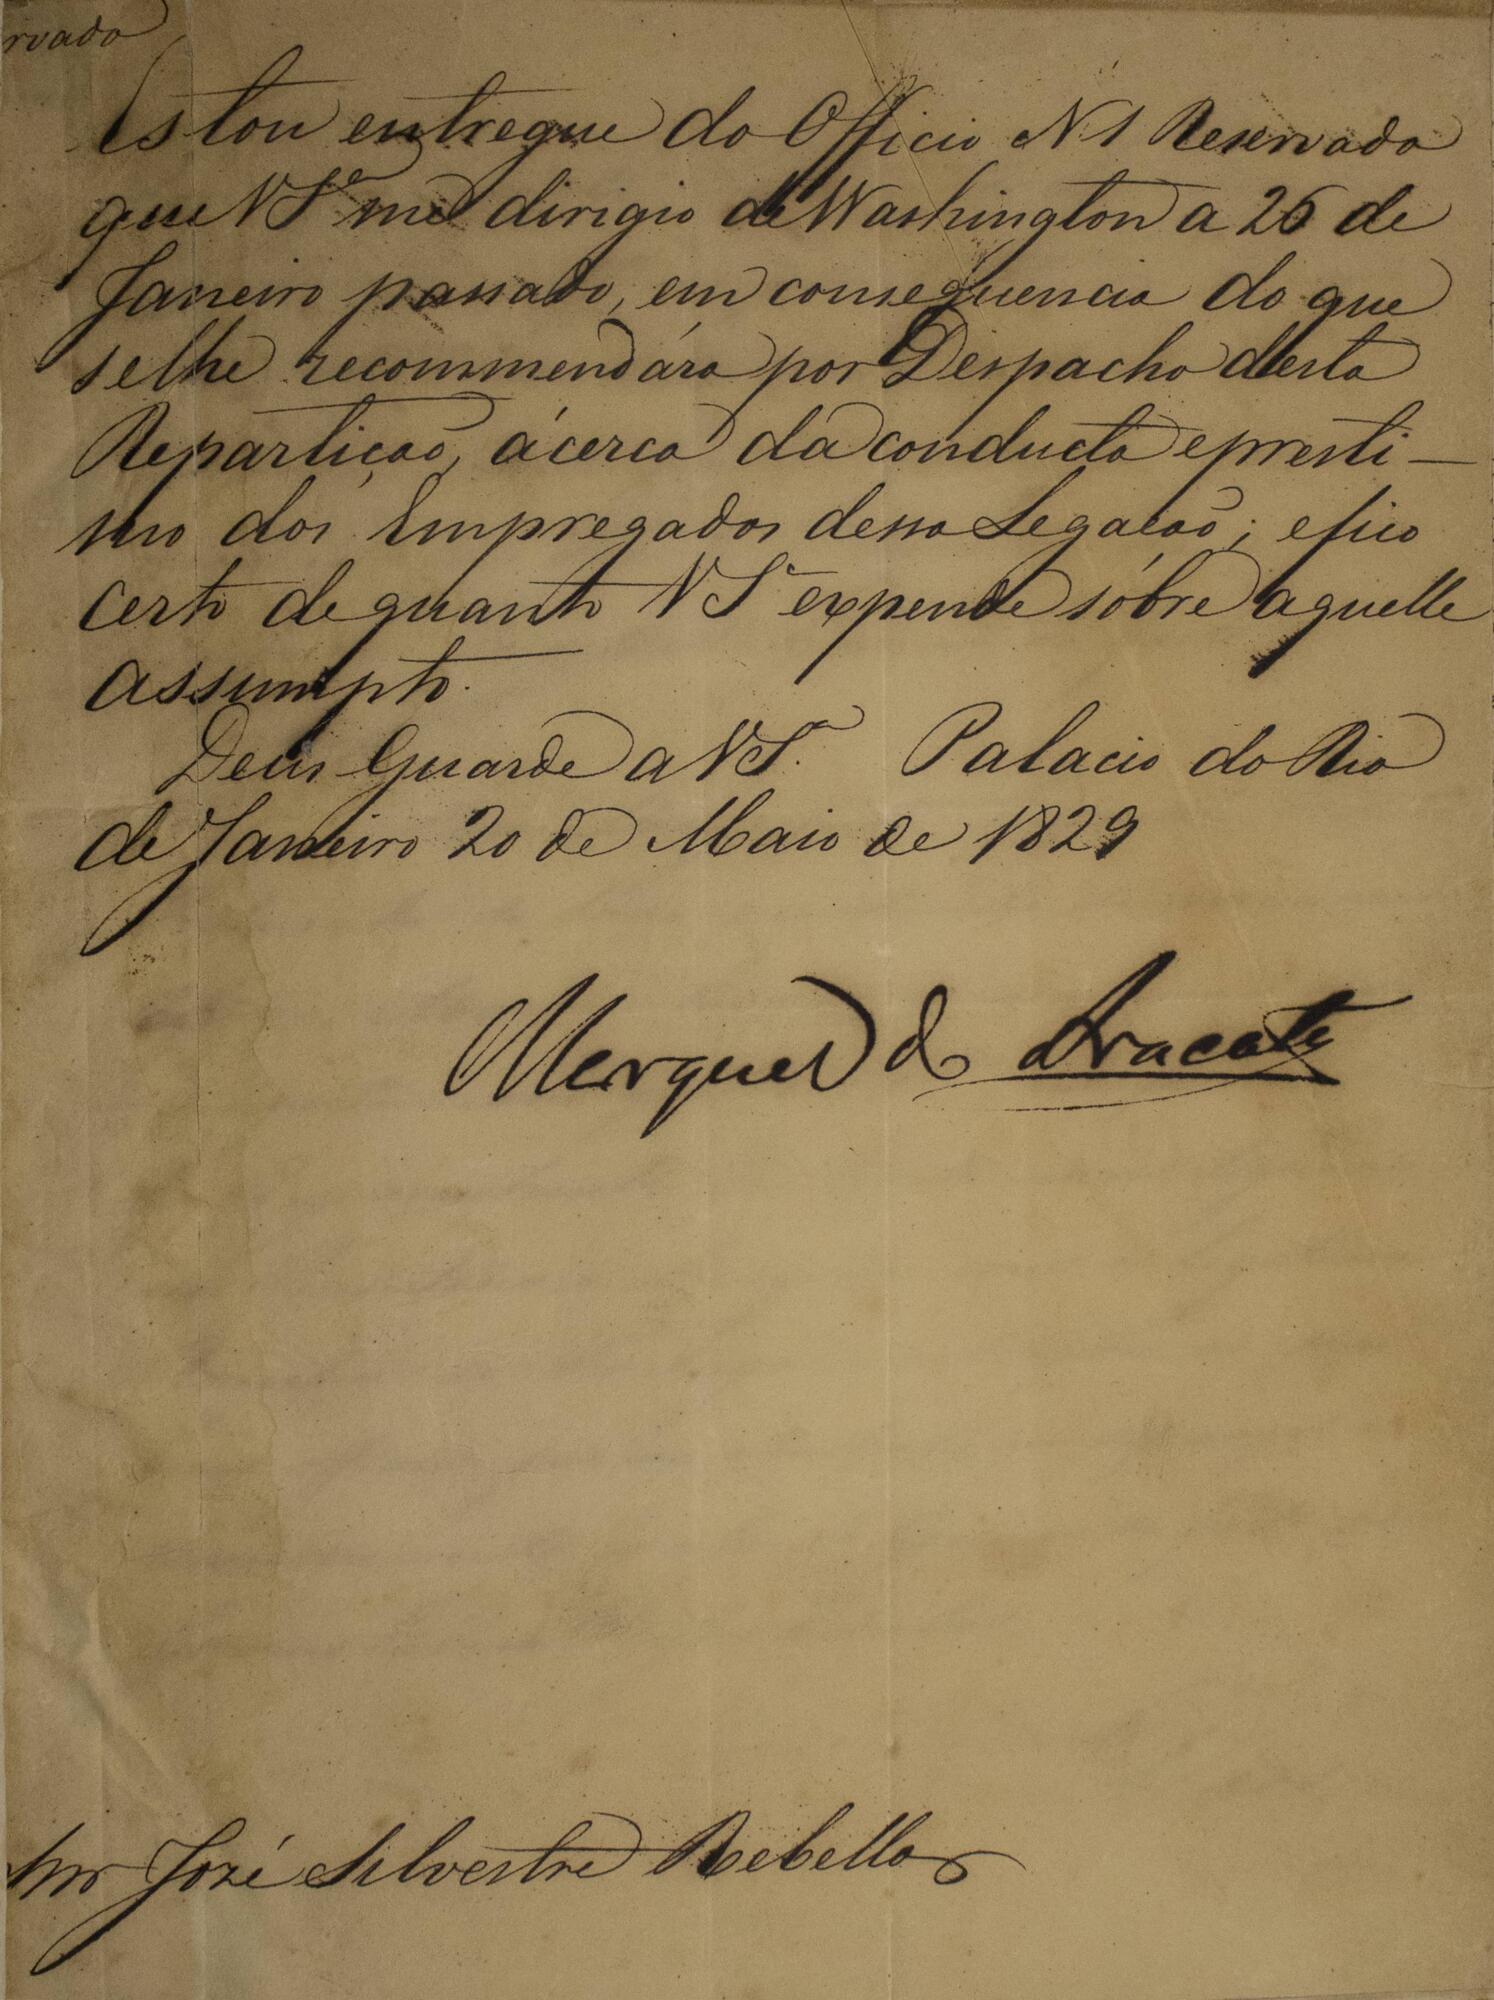 rvado
Estou entregue do Officio N 1 Reservado
que V Sr.ª me dirigio de Washington a 26 de
Janeiro passado, em consequencia do que
se lhe recommendára por Despacho desta
Repartição, ácerca da conducta e presti-
mo dos Empregados dessa Legacão; e fico
certo de quanto V Sª expende sóbre aquelle
assumpto.
Deus Guarde a V Sª. Palacio do Rio
de Janeiro 20 de Maio de 1829
Marquez de Aracaty
Snr José Silvestre Rebello